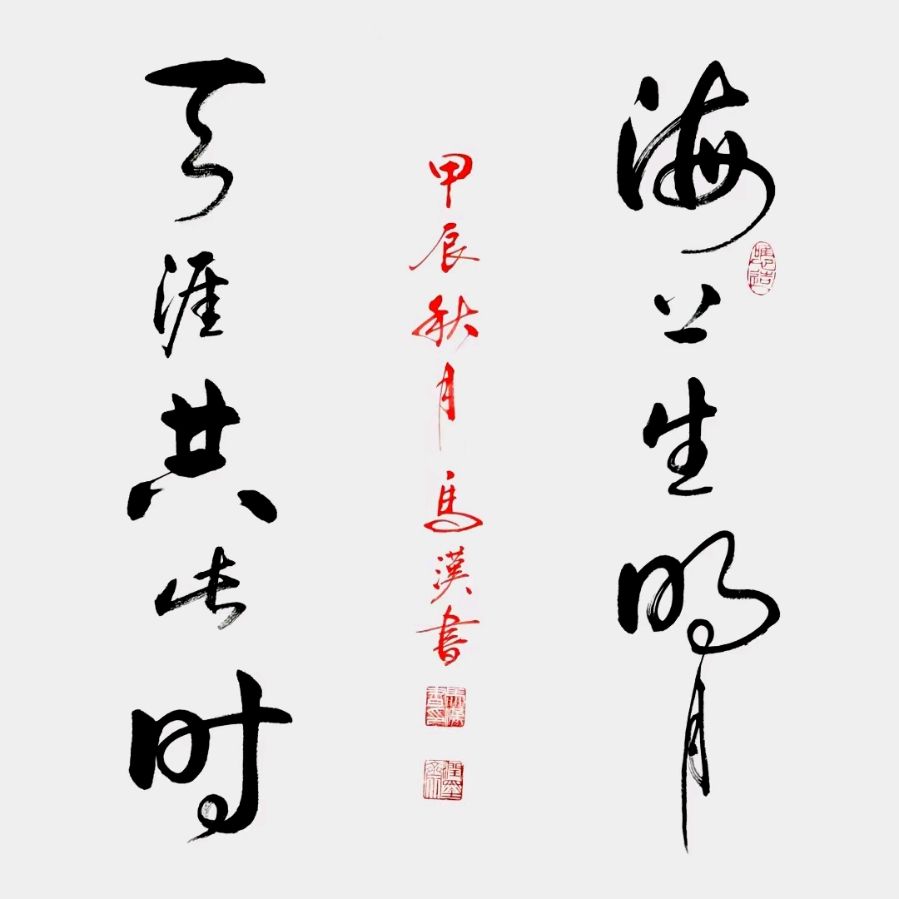 海上生明月
天涯共此时
甲辰秋月馬漢書